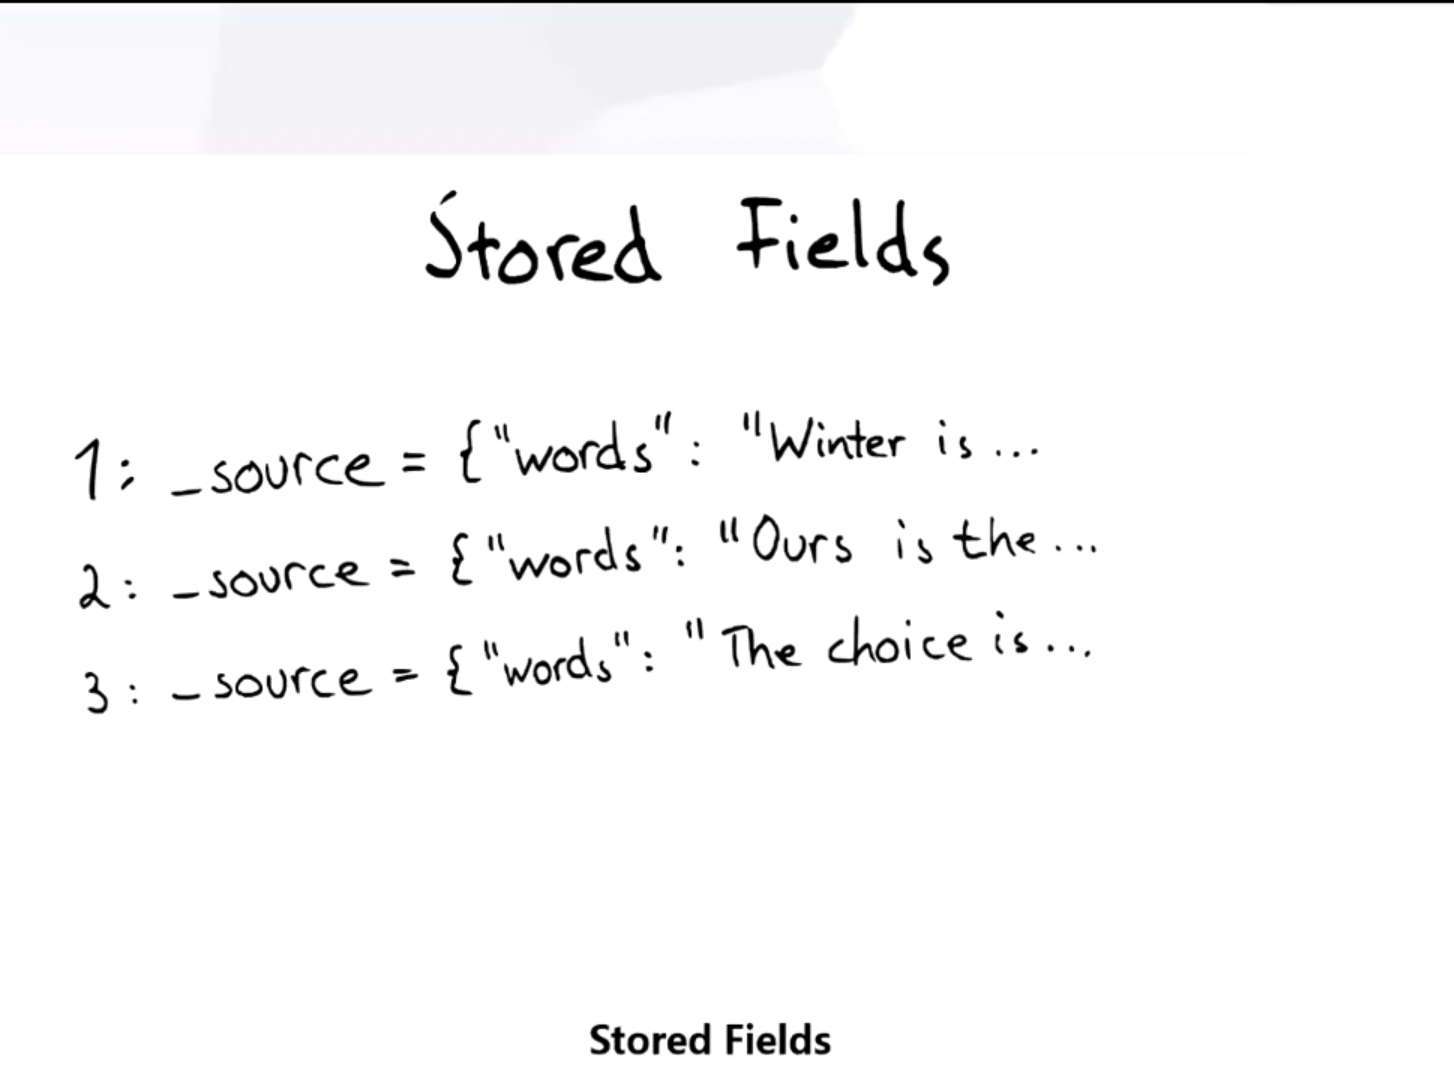 Stored Fields
1: _source = {"words": "Winter is...
2: _source = {"words": "Ours is the...
3: _source = {"words": "The choice is...
Stored Fields